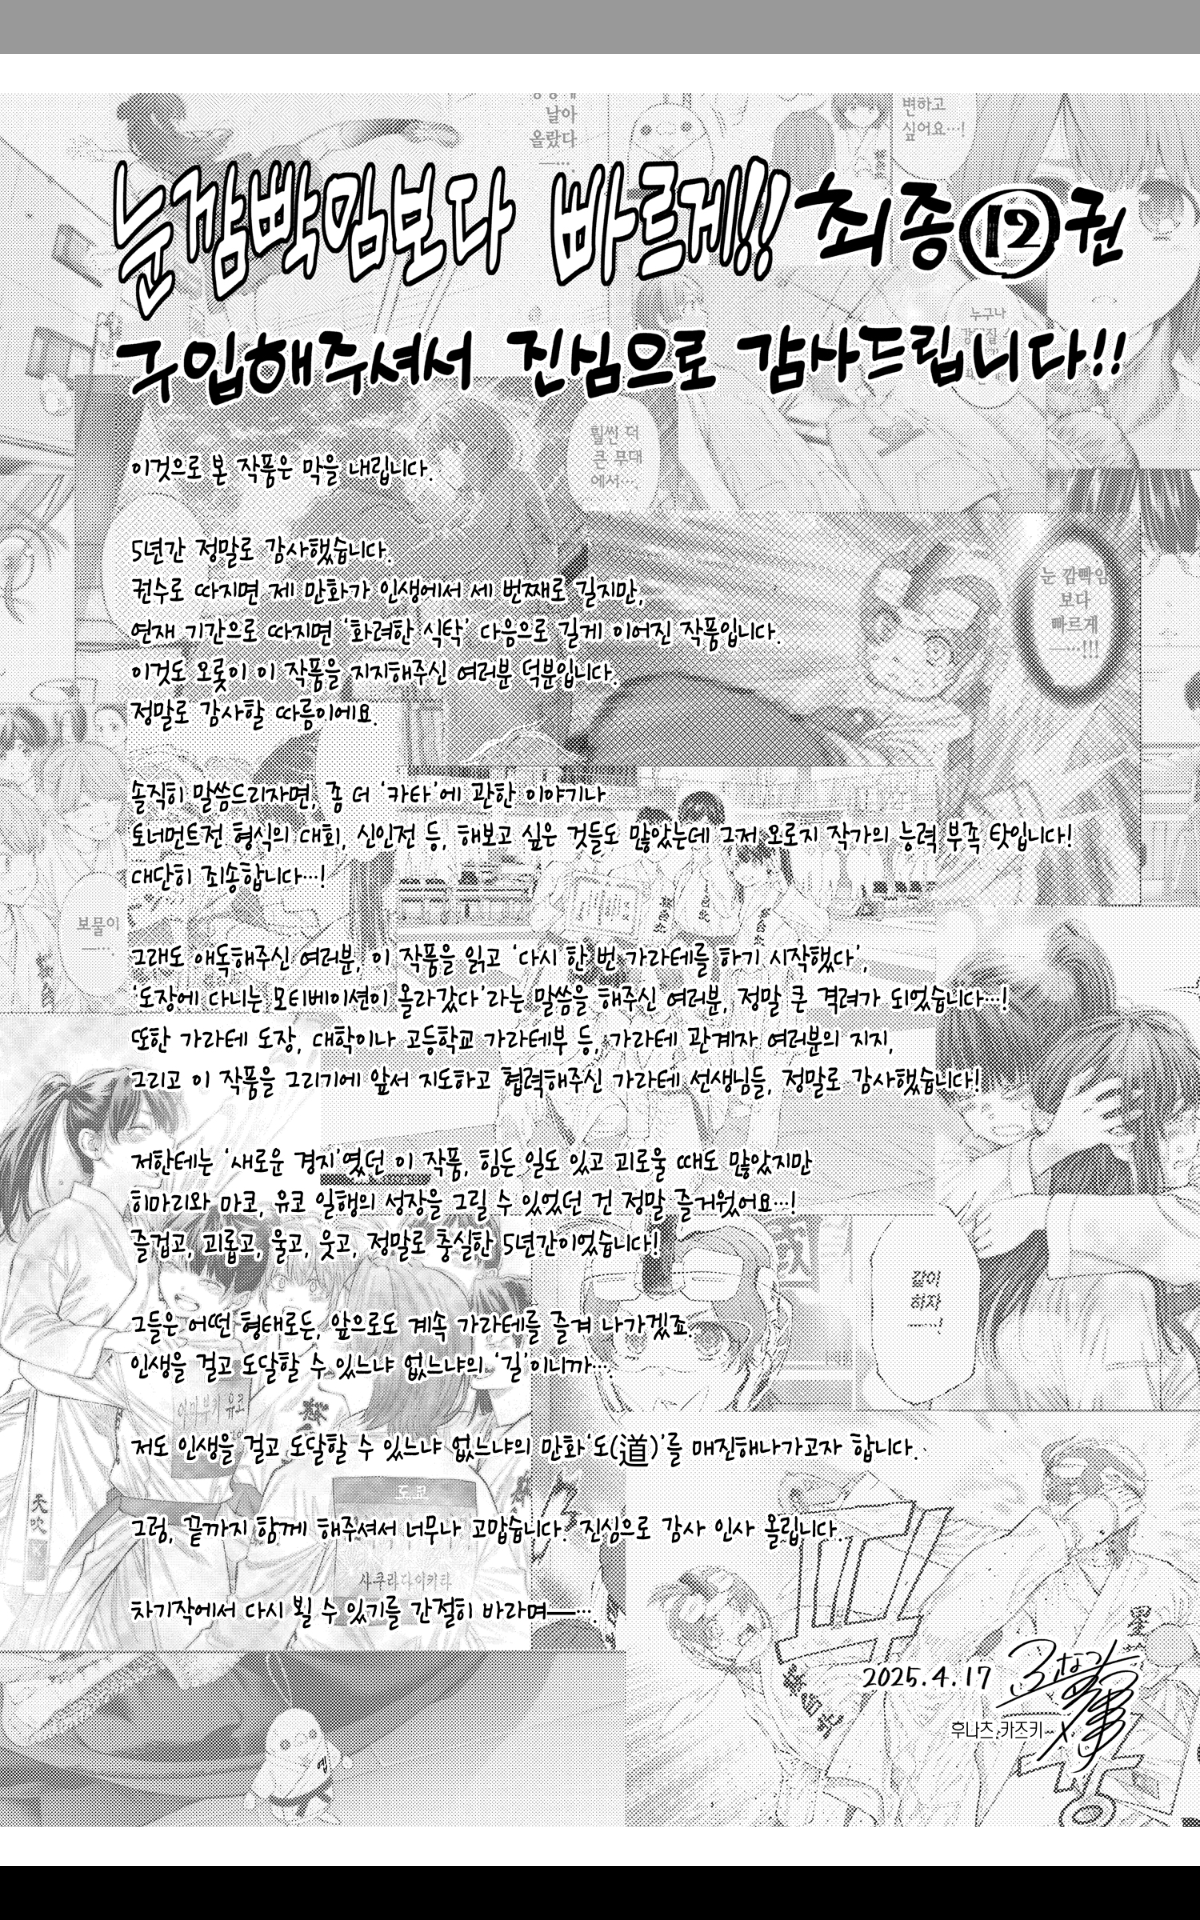 날아
올랐다
변하고
싶어요…!
눈 깜빡임보다 빠르게!! 최종 ⑫권
구입해주셔서 진심으로 감사드립니다!!
누구나
훨씬 더
큰 무대
에서…
이것으로 본 작품은 막을 내립니다.
5년간 정말로 감사했습니다.
권수로 따지면 제 만화가 인생에서 세 번째로 길지만,
연재 기간으로 따지면 '화려한 식탁' 다음으로 길게 이어진 작품입니다.
이것도 오롯이 이 작품을 지지해주신 여러분 덕분입니다.
정말로 감사할 따름이에요.
눈 깜빡임
보다
빠르게
─…!!!
솔직히 말씀드리자면, 좀 더 '카타'에 관한 이야기나
토너먼트전 형식의 대회, 신인전 등, 해보고 싶은 것들도 많았는데 그저 오로지 작가의 능력 부족 탓입니다!
대단히 죄송합니다…!
보물이
─…
그래도 애독해주신 여러분, 이 작품을 읽고 '다시 한 번 가라테를 하기 시작했다',
'도장에 다니는 모티베이션이 올라갔다'라는 말씀을 해주신 여러분, 정말 큰 격려가 되었습니다…!
또한 가라테 도장, 대학이나 고등학교 가라테부 등, 가라테 관계자 여러분의 지지,
그리고 이 작품을 그리기에 앞서 지도하고 협력해주신 가라테 선생님들, 정말로 감사했습니다!
저한테는 '새로운 경지'였던 이 작품, 힘든 일도 있고 괴로울 때도 많았지만
히마리와 마코, 유코 일행의 성장을 그릴 수 있었던 건 정말 즐거웠어요…!
즐겁고, 괴롭고, 울고, 웃고, 정말로 충실한 5년간이었습니다!
같이
하자
─…!
그들은 어떤 형태로든, 앞으로도 계속 가라테를 즐겨 나가겠죠.
인생을 걸고 도달할 수 있느냐 없느냐의 '길'이니까….
저도 인생을 걸고 도달할 수 있느냐 없느냐의 만화'도(道)'를 매진해나가고자 합니다.
天吹
도.코
그럼, 끝까지 함께 해주셔서 너무나 고맙습니다. 진심으로 감사 인사 올립니다.
사쿠라다이키타
차기작에서 다시 뵐 수 있기를 간절히 바라며──….
2025.4.17
후나츠 카즈키